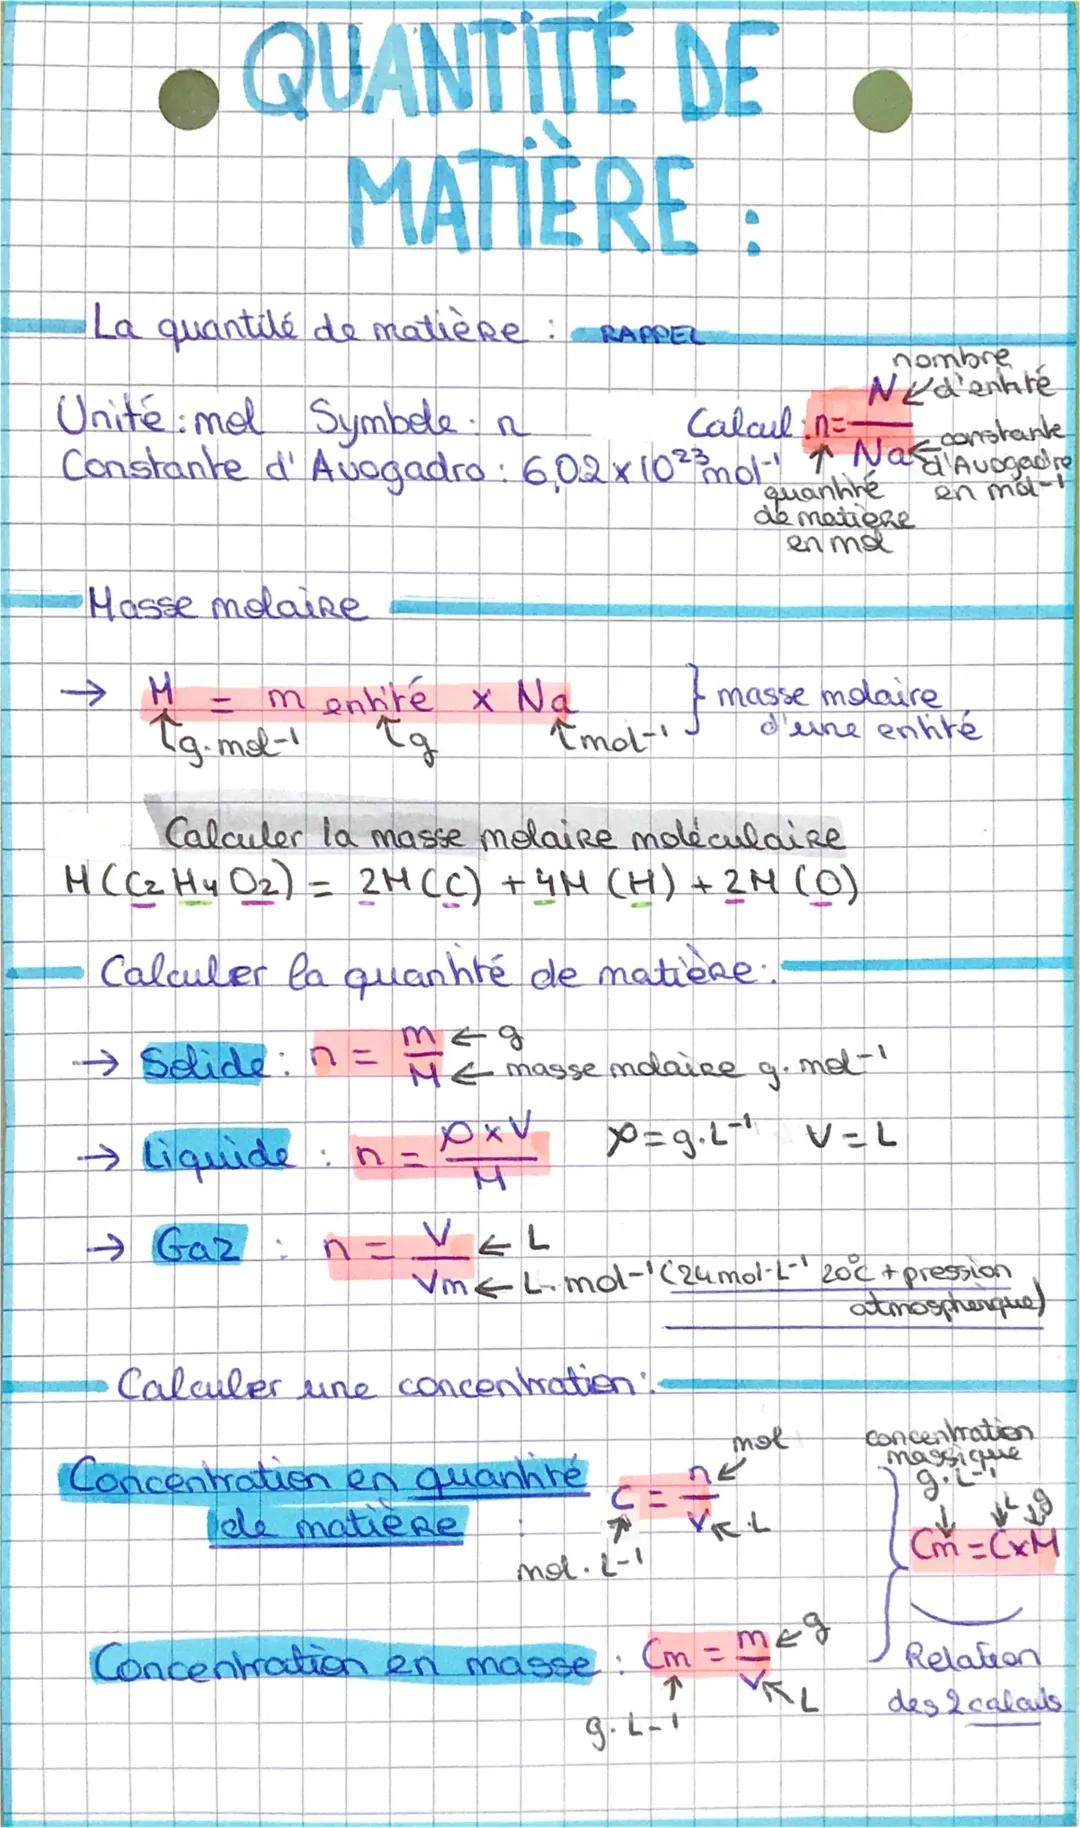 QUANTITÉ DE
MATIÈRE :
La quantité de matière : RAPPEL
Unité : mol Symbole : n
Constante d'Avogadro : 6,02 x 10²³ mol⁻¹
Calcul : n = N / Na
nombre d'entité
constante d'Avogadro en mol⁻¹
quantité de matière en mol
Masse molaire
→ M = m entité x Na } masse molaire d'une entité
g.mol-1 g mol-1
Calculer la masse molaire moléculaire
M(C2H4O2) = 2M(C) + 4M(H) + 2M(O)
Calculer la quantité de matière :
→ Solide : n = m / M ← g ← masse molaire g.mol-1
→ Liquide : n = ρxV / M ρ = g.L-1 V = L
→ Gaz : n = V / Vm ← L ← L.mol-1 (24mol.L-1 20°C + pression
atmosphérique)
Calculer une concentration :
Concentration en quantité
de matière : C = n / V
mol
L
mol.L-1
concentration
massique
g.L-1
L g
Cm = CxM
Relation
des 2 calculs
Concentration en masse : Cm = m / V
g
L
g.L-1